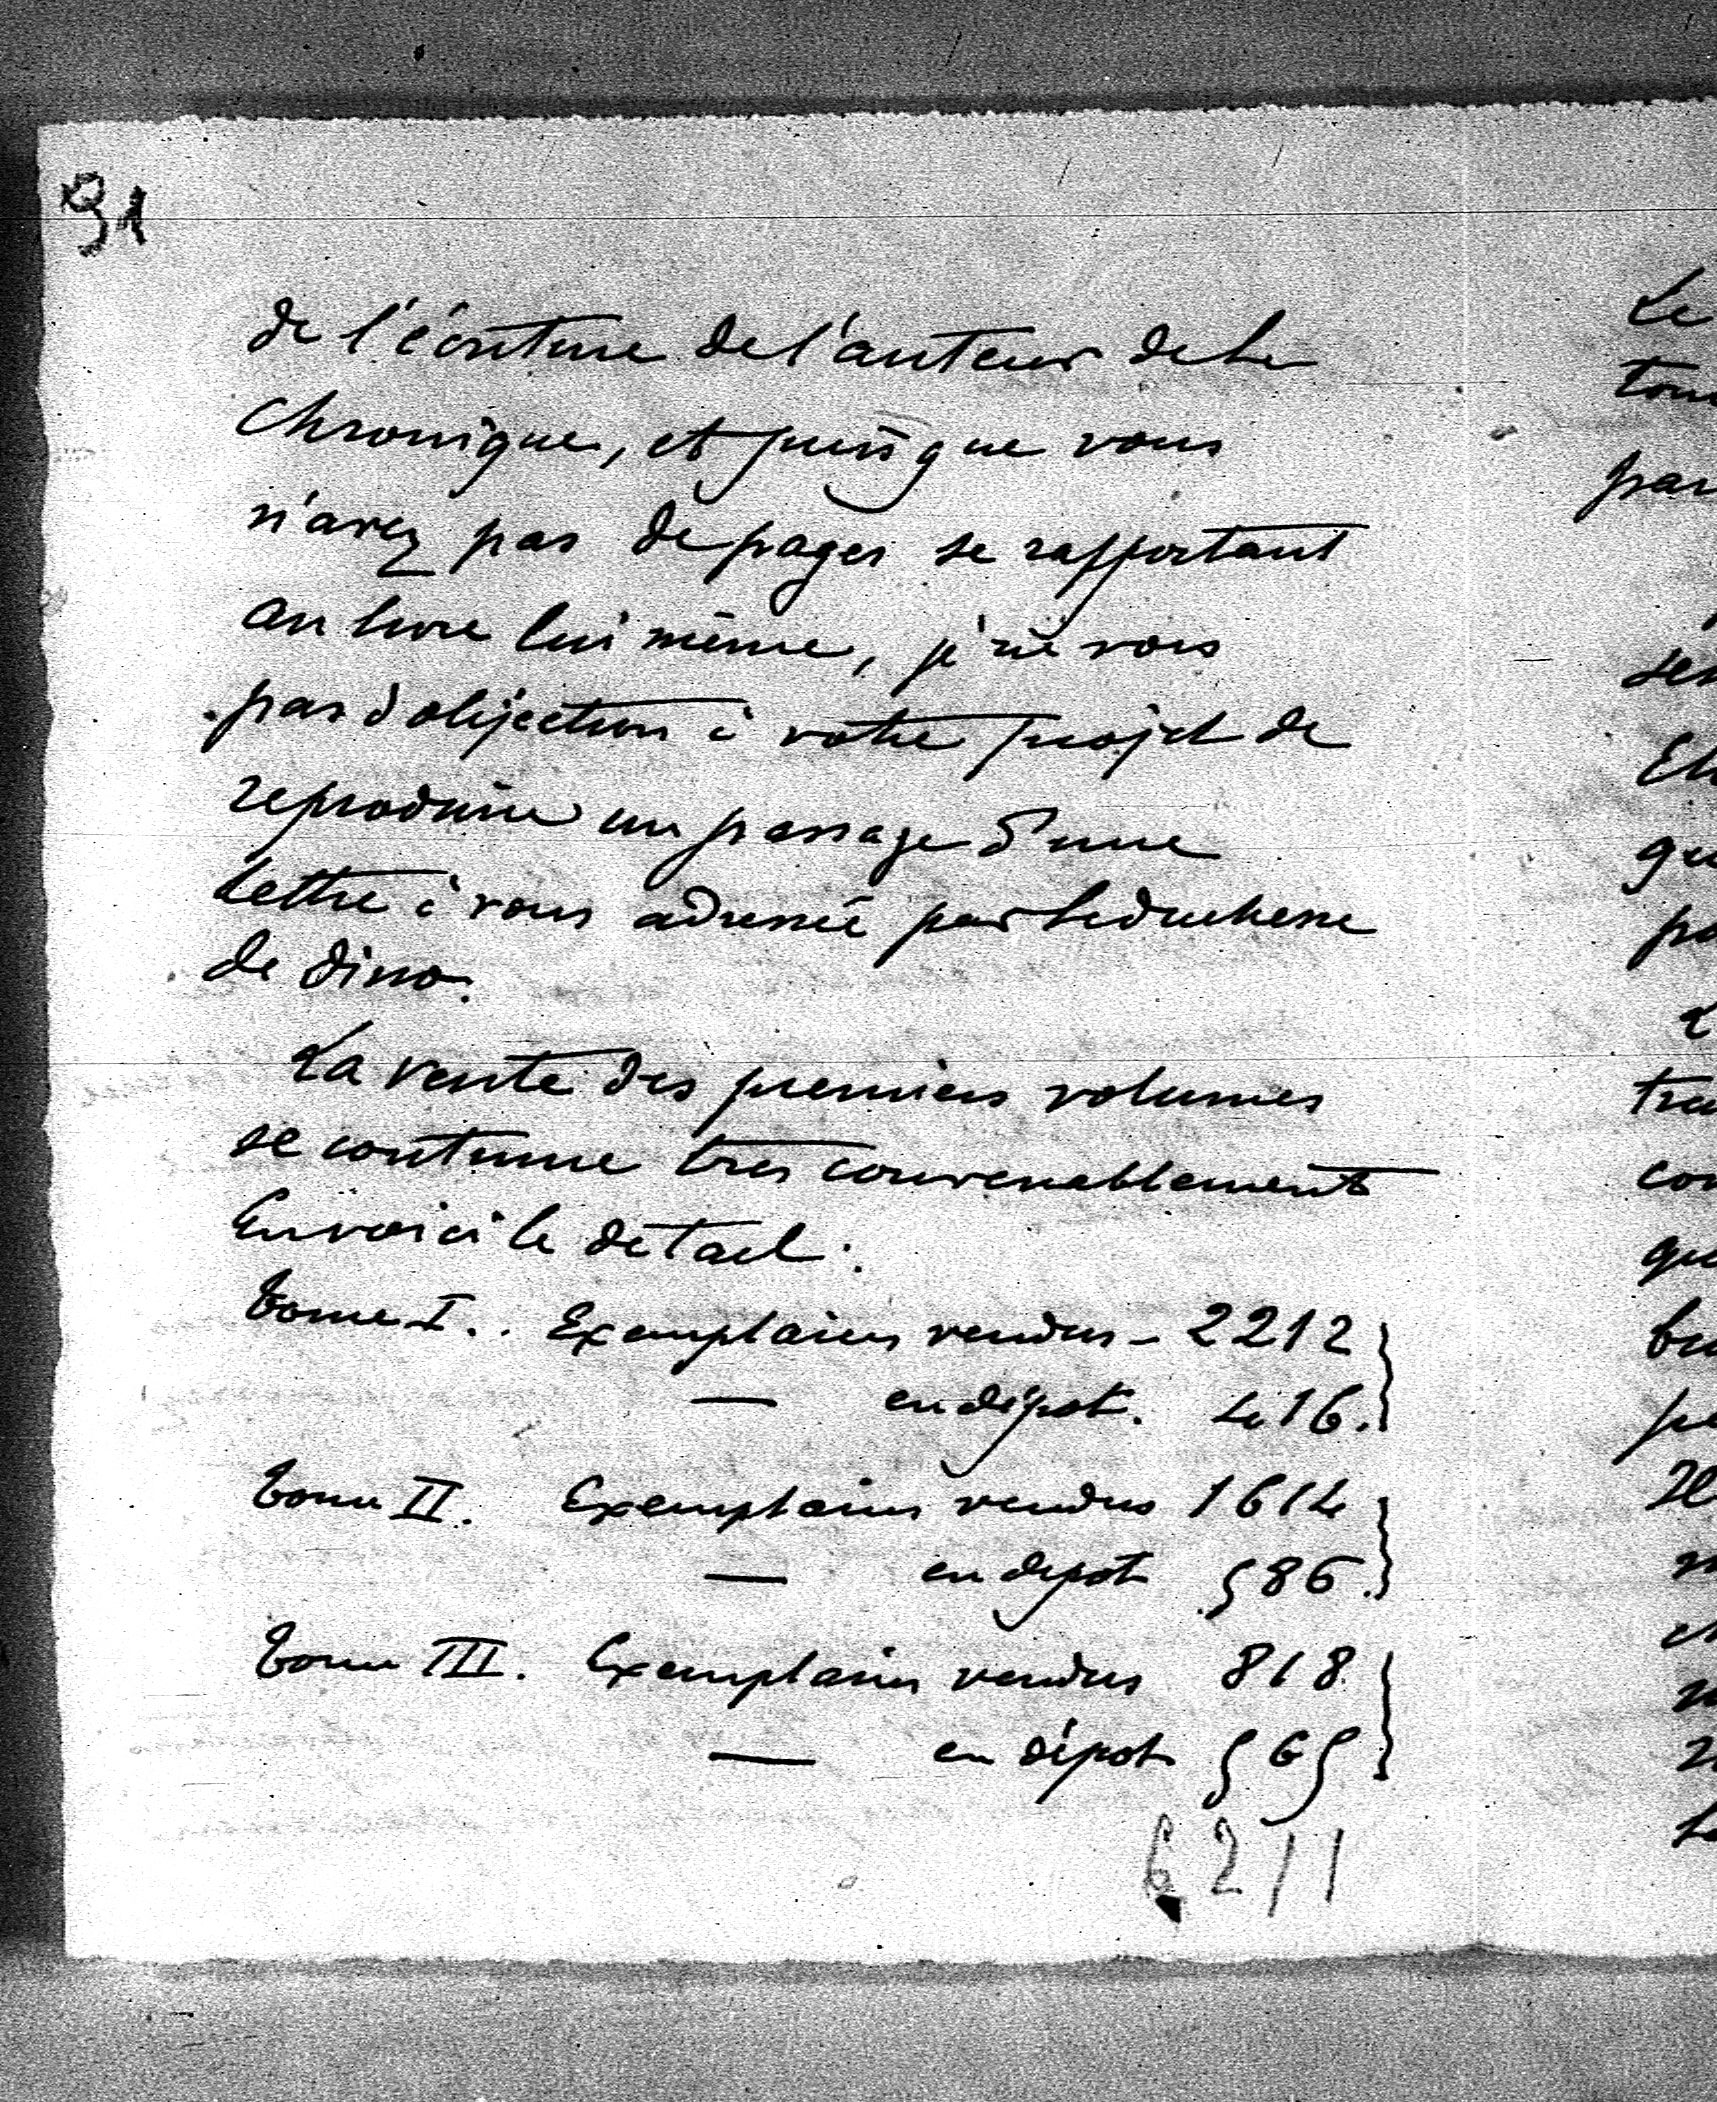 91
de l'écriture de l'auteur de la
Chronique, et puisque vous
n'avez pas de pages se rapportant
au livre lui même, je ne vois
pas d'objection à votre projet de
reproduire un passage d'une
lettre à vous adressée par la duchesse
de Dino.
La vente des premiers volumes
se continue très convenablement
En voici le détail :
Tome I.. Exemplaires vendus - 2212
— en dépôt. 416.
Tome II. Exemplaires vendus 1614
— en depot 586.
Tome III. Exemplaires vendus 818
— en dépot 565
6211
Le
tom
par
sen
Ell
qu
po
L
tra
con
qu
bu
pe
Il